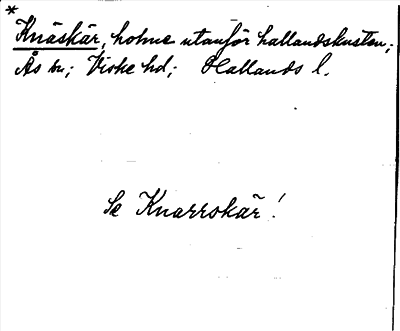 *
Knäskär, holme utanför hallandskusten;
Ås sn; Viske hd; Hallands l.
Se Knarrskär!